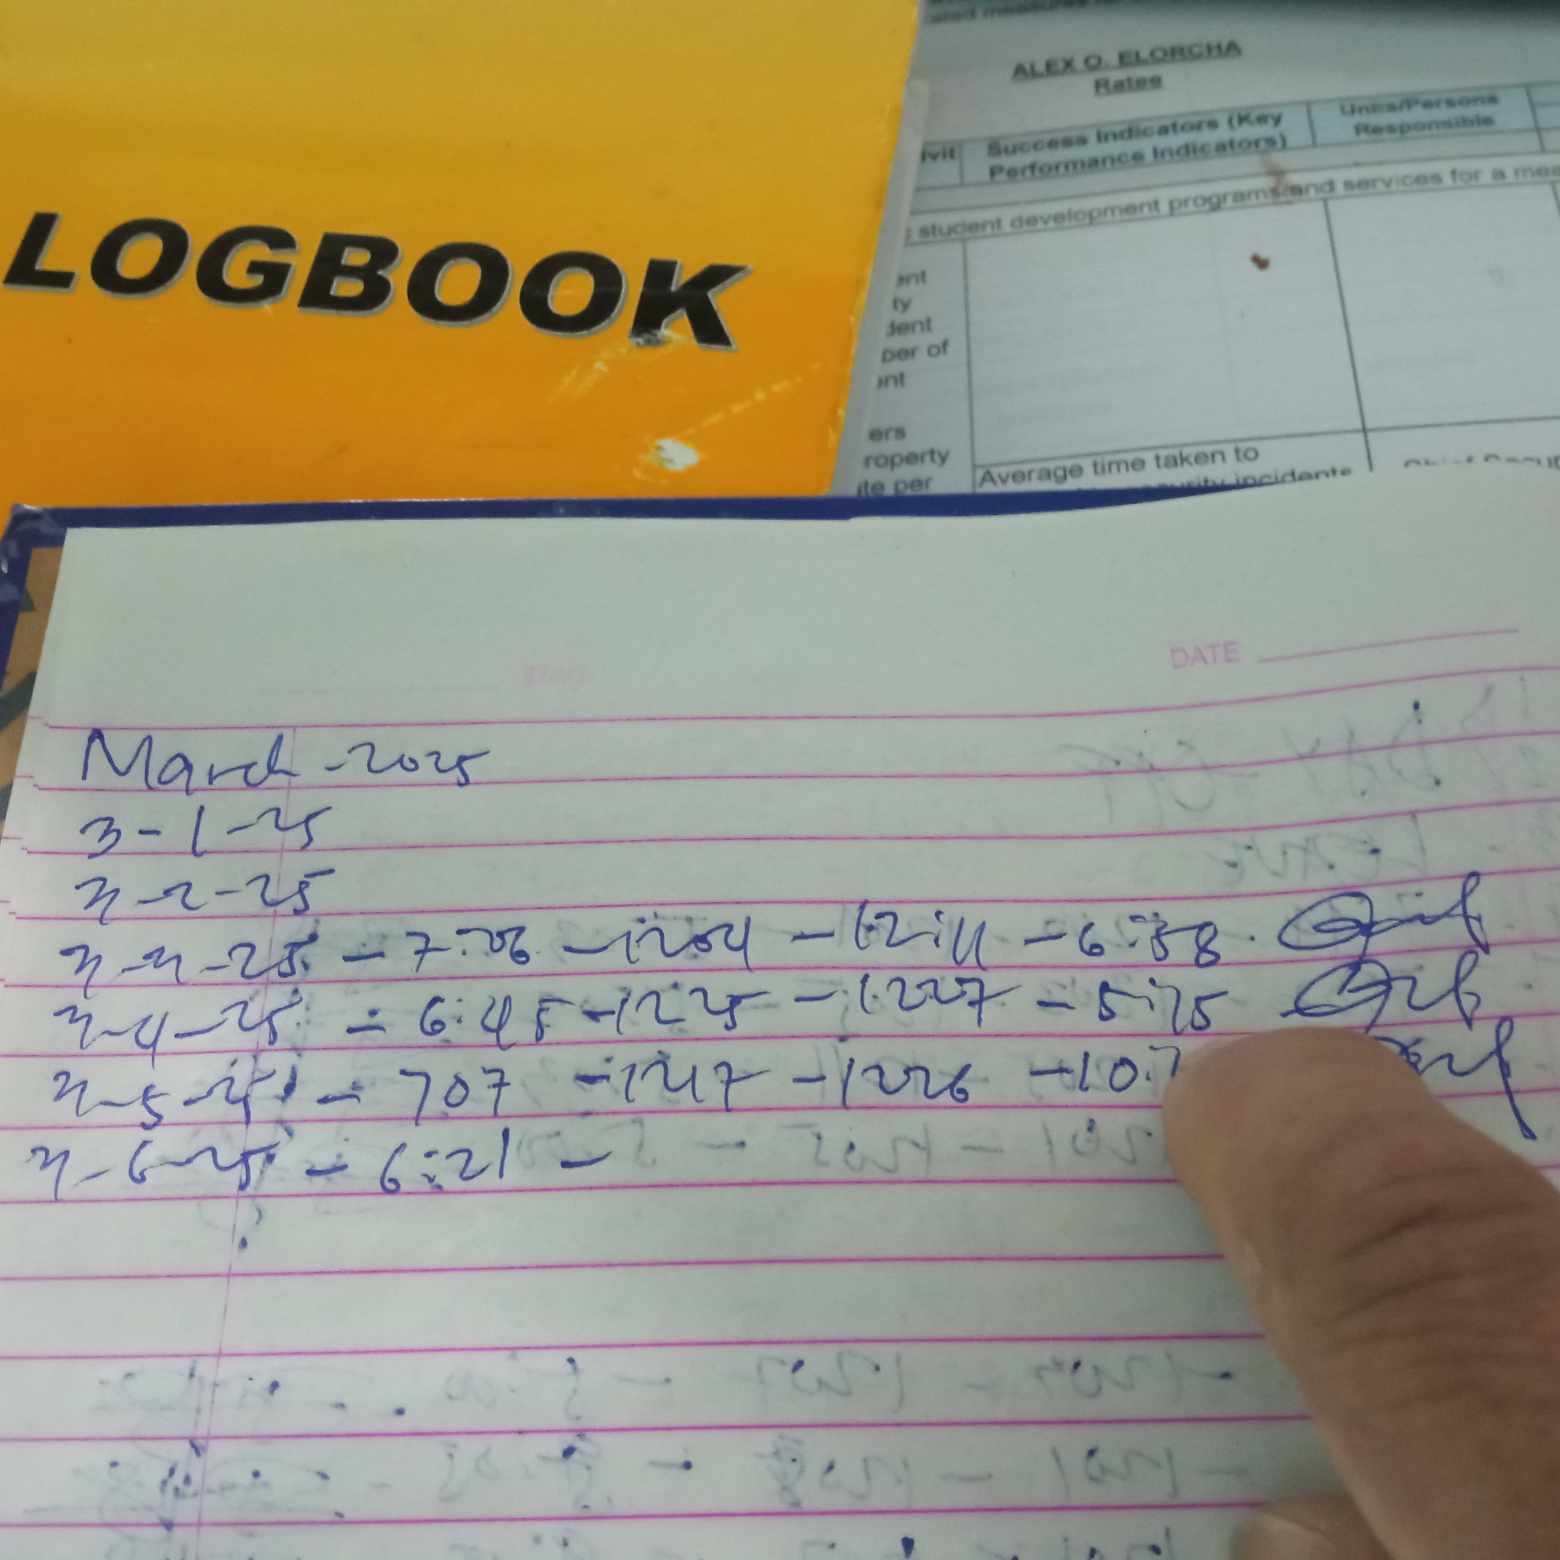 ALEX O. ELORCHA
Rates
Success Indicators (Key
Performance Indicators)
Units/Persons
Responsible
student development programs and services for a
ent
ty
dent
ber of
ent
ers
roperty
ite per
Average time taken to
security incidents
LOGBOOK
DATE
March - 2025
3 - 1 - 25
3 - 2 - 25
3 - 3 - 25 - 7:06 - 1204 - 12:11 - 6:38
3 - 4 - 25 - 6:45 - 1225 - 1227 - 5:15
3 - 5 - 25 - 707 - 1217 - 1226 - 10:
3 - 6 - 25 - 6:21 -